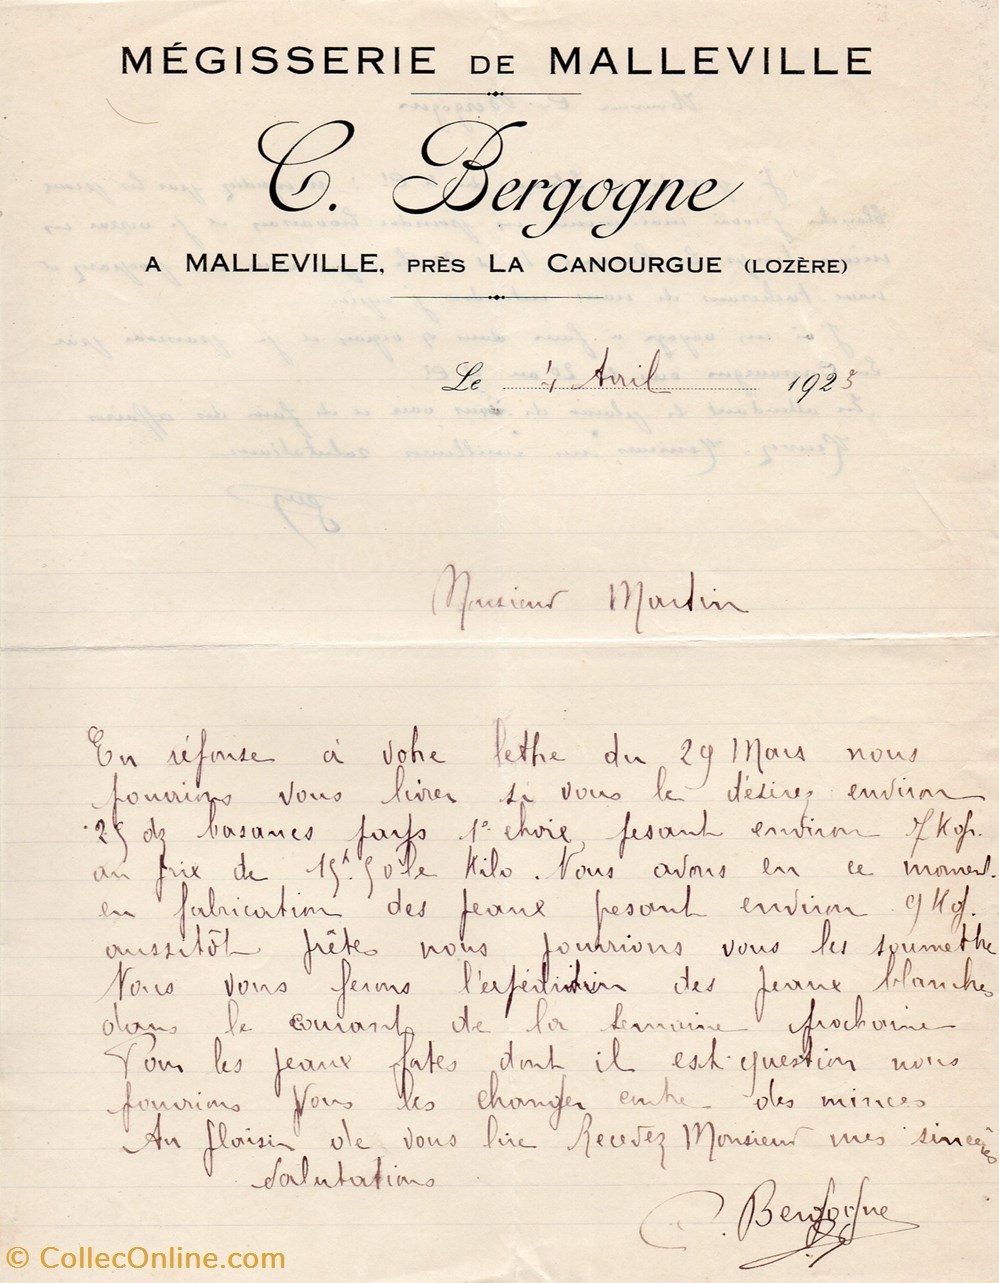 MÉGISSERIE DE MALLEVILLE
C. Bergogne
A MALLEVILLE, PRÈS LA CANOURGUE (LOZÈRE)
Le 4 Avril 1923
Monsieur Martin
En réponse à votre lettre du 29 Mars nous
pourrions vous livrer si vous le désirez environ
25 dz basanes pays 1º choix, pesant environ 7 Kogr.
au prix de 15f.50 le Kilo. Nous avons en ce moment
en fabrication des peaux pesant environ 9 Kog.
aussitôt prêtes nous pourrions vous les soumettre
Nous vous ferons l'expédition des peaux blanches
dans le courant de la semaine prochaine
Pour les peaux pates dont il est question nous
pourrions vous les changer contre des minces
Au plaisir de vous lire Recevez Monsieur mes sincères
Salutations
C. Bergogne
© CollecOnline.com